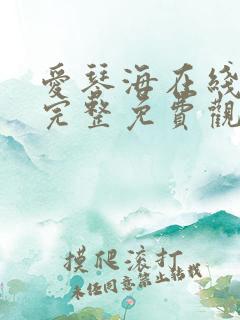 愛琴海在綫
完整免費觀
摸爬滚打
未经同意禁止转载